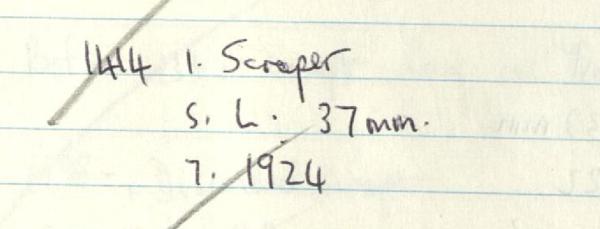 1414 1. Scraper
5. L. 37mm.
7. 1924